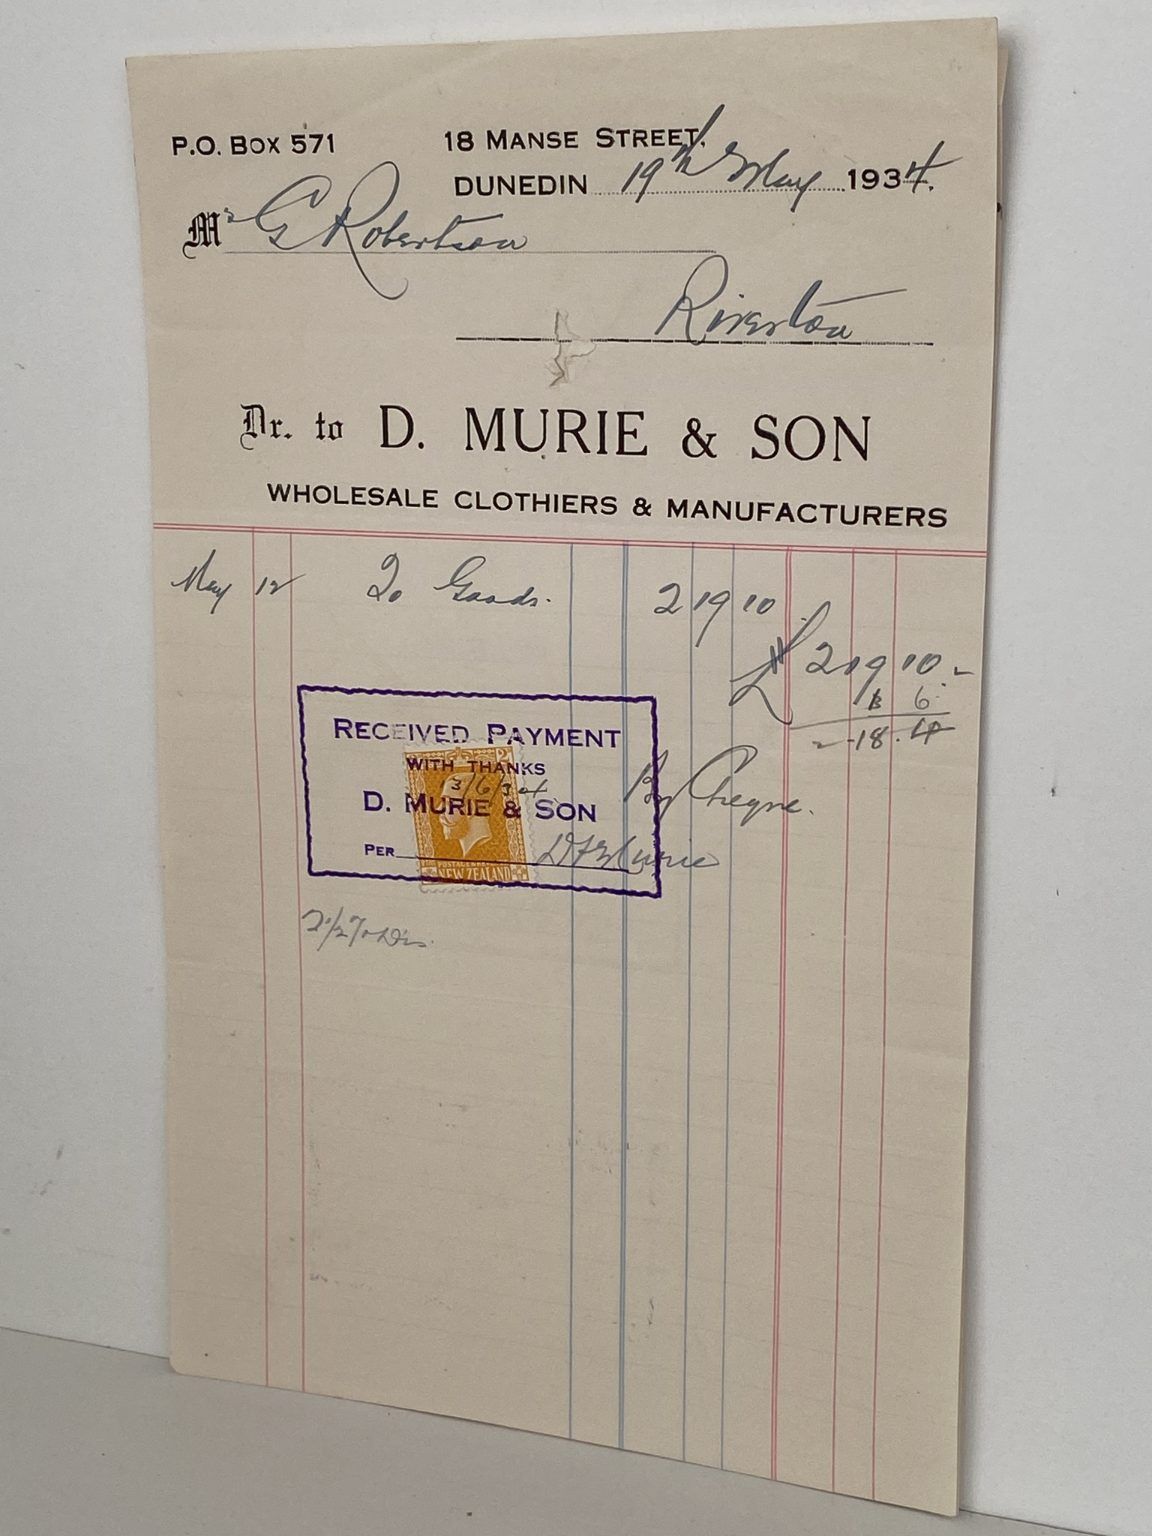 P.O. BOX 571
18 MANSE STREET,
DUNEDIN 19th May 1934.
Mr G Robertson
Riverton
Dr. to D. MURIE & SON
WHOLESALE CLOTHIERS & MANUFACTURERS
May 12 To Goods. 2 19 10
£ 2 19 10
1 6
2 18 4
RECEIVED PAYMENT
WITH THANKS
13/6/34
D. MURIE & SON
By Cheque.
PER D F Murie
POSTAGE & REVENUE
NEW ZEALAND
2½% Dis.